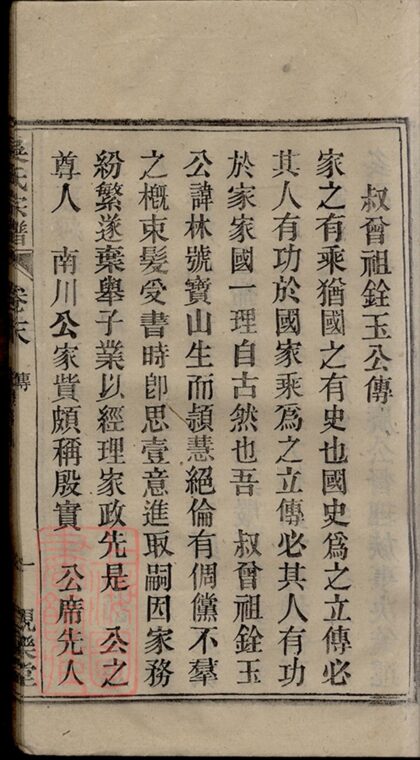 叔曾祖銓玉公傳
家之有乘猶國之有史也國史爲之立傳必
其人有功於國家乘爲之立傳必其人有功
於家家國一理自古然也吾 叔曾祖銓玉
公諱林號寶山生而頴慧絕倫有倜儻不羣
之槪束髮受書時卽思壹意進取嗣因家務
紛繁遂棄舉子業以經理家政先是 公之
尊人 南川公家貲頗稱殷實 公席先人
氏宗譜 卷末 傳 一 觀樂堂